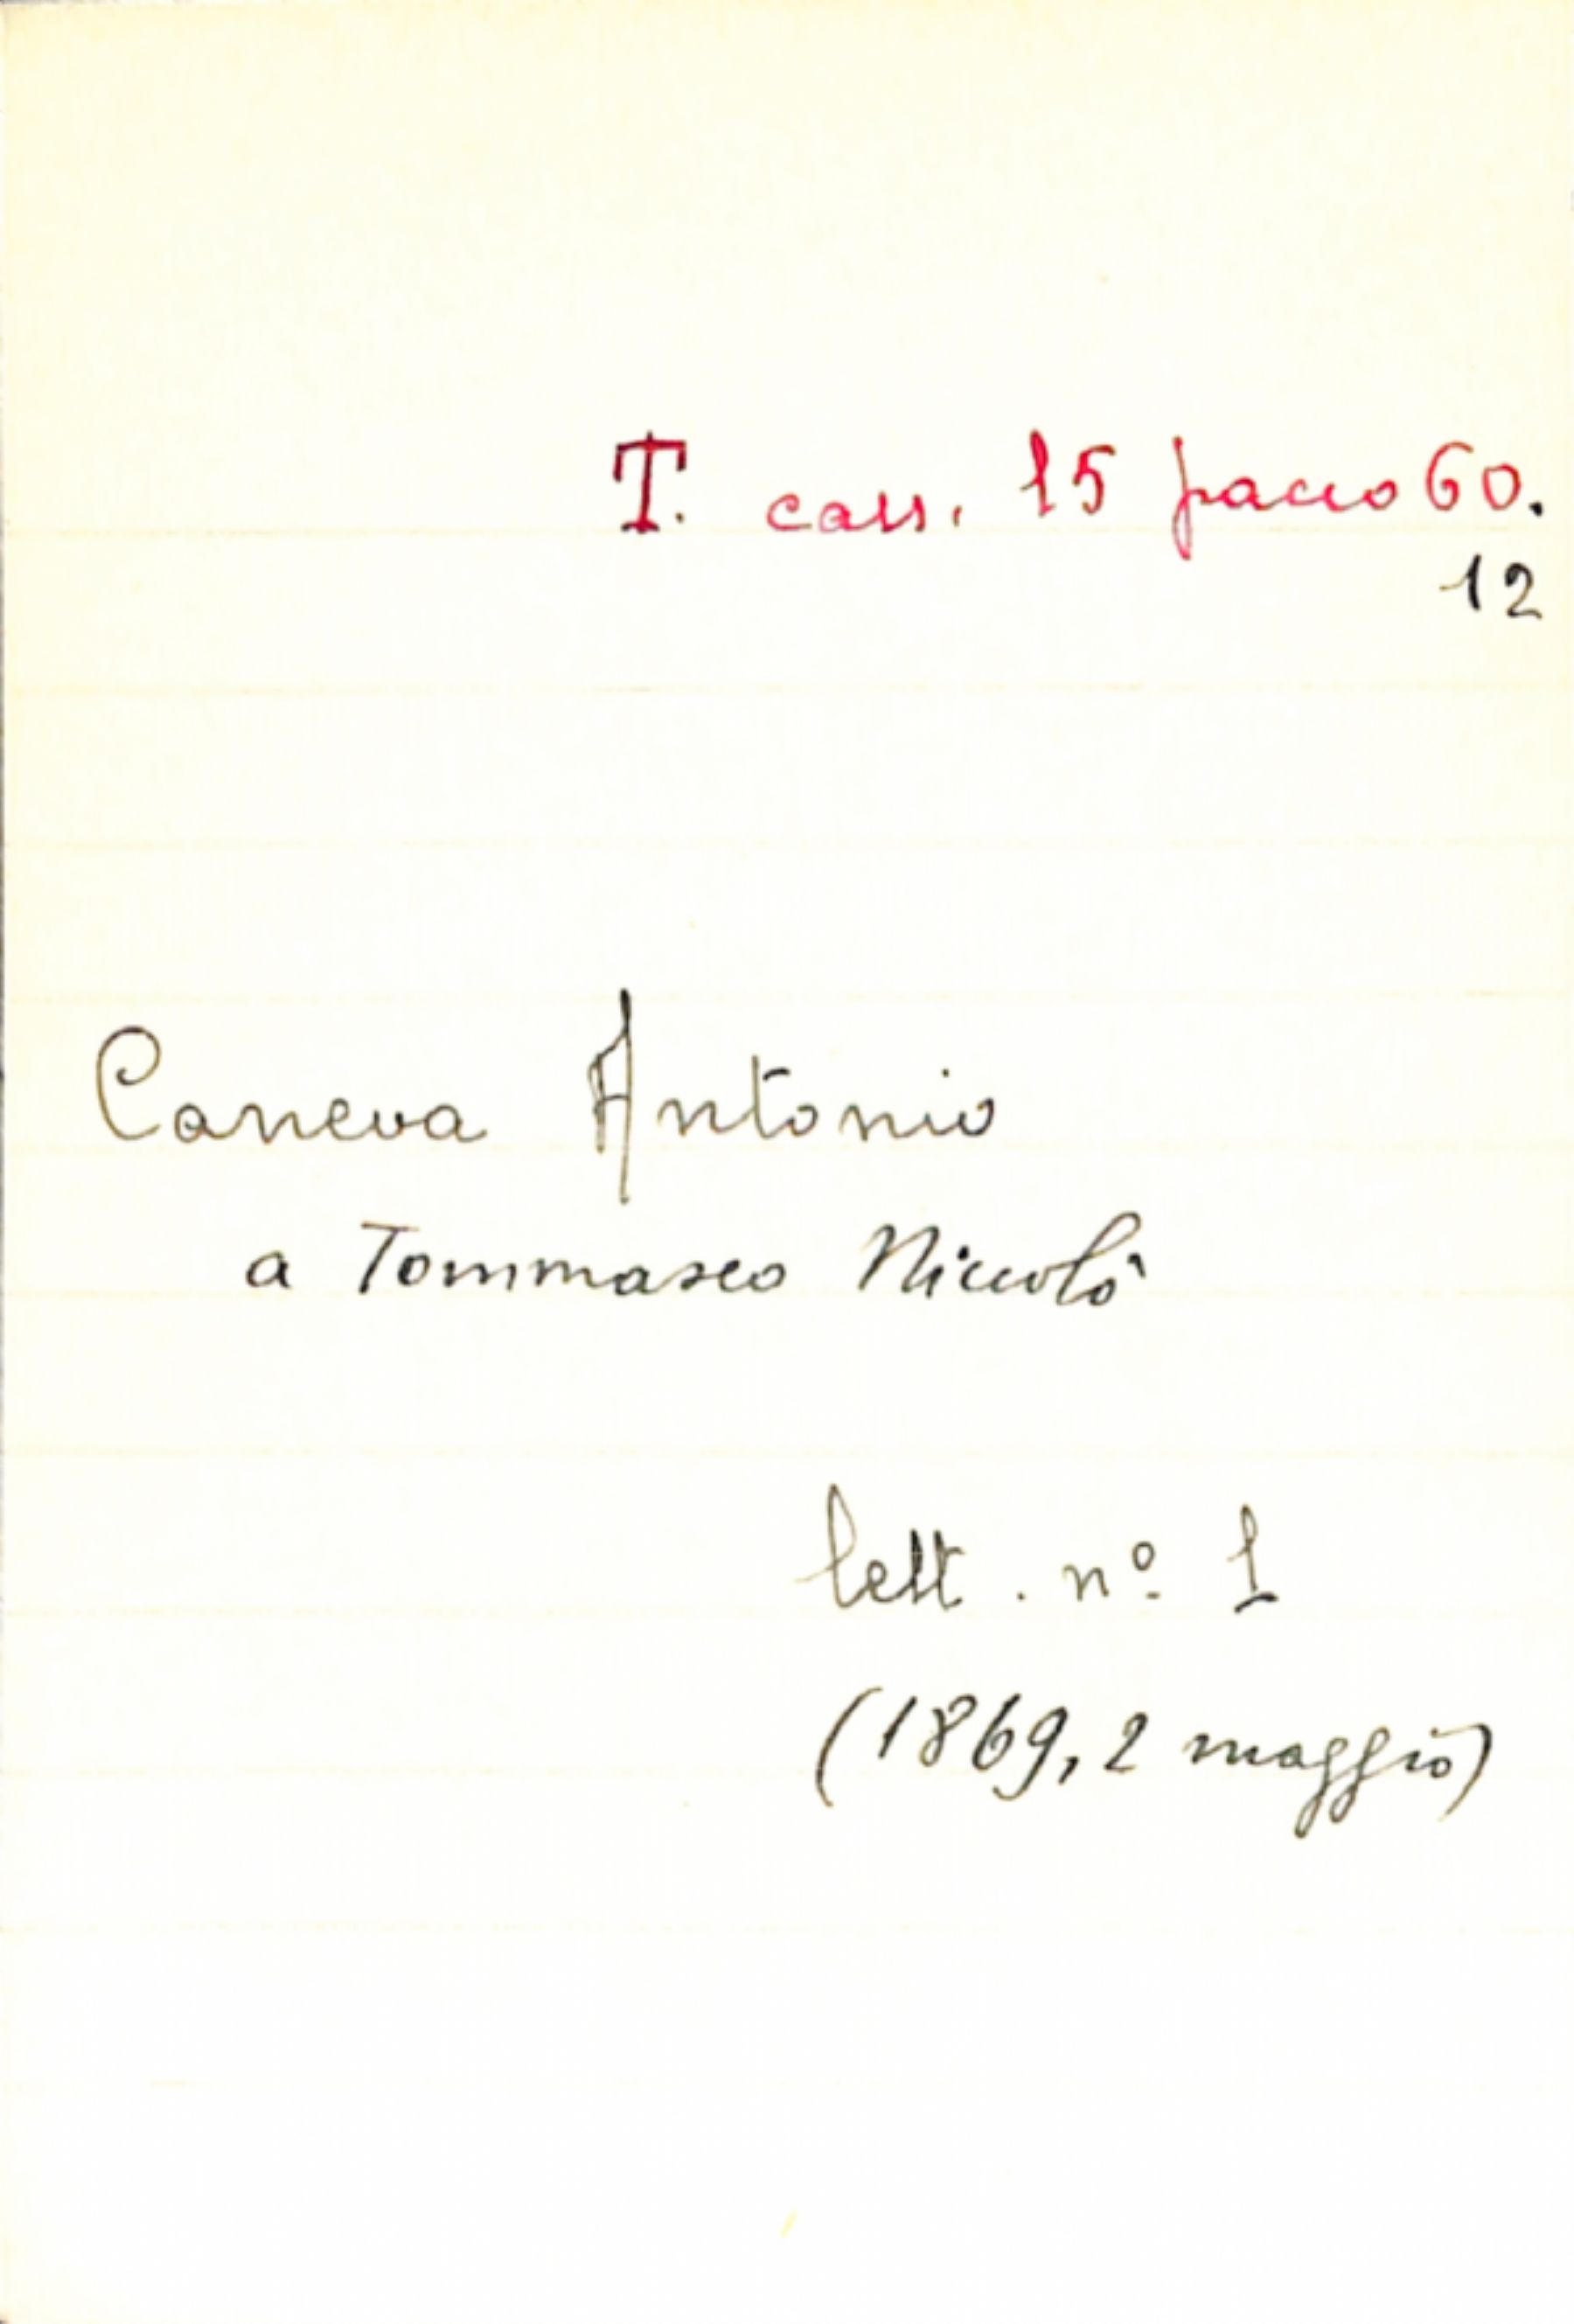 T. cass. 15 pacco 60.
12
Caneva Antonio
a Tommaseo Niccolò
lett. nº 1
(1869, 2 maggio)